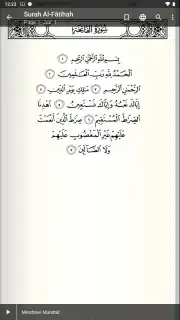 12:23
Surah Al-Fātihah
Page 1, Juz' 1
سُورَةُ الفَاتِحَةِ
بِسْمِ اللَّهِ الرَّحْمَٰنِ الرَّحِيمِ ١
الْحَمْدُ لِلَّهِ رَبِّ الْعَالَمِينَ ٢
الرَّحْمَٰنِ الرَّحِيمِ ٣ مَالِكِ يَوْمِ الدِّينِ ٤
إِيَّاكَ نَعْبُدُ وَإِيَّاكَ نَسْتَعِينُ ٥ اهْدِنَا
الصِّرَاطَ الْمُسْتَقِيمَ ٦ صِرَاطَ الَّذِينَ أَنْعَمْتَ
عَلَيْهِمْ غَيْرِ الْمَغْضُوبِ عَلَيْهِمْ
وَلَا الضَّالِّينَ ٧
Minshawi Murattal